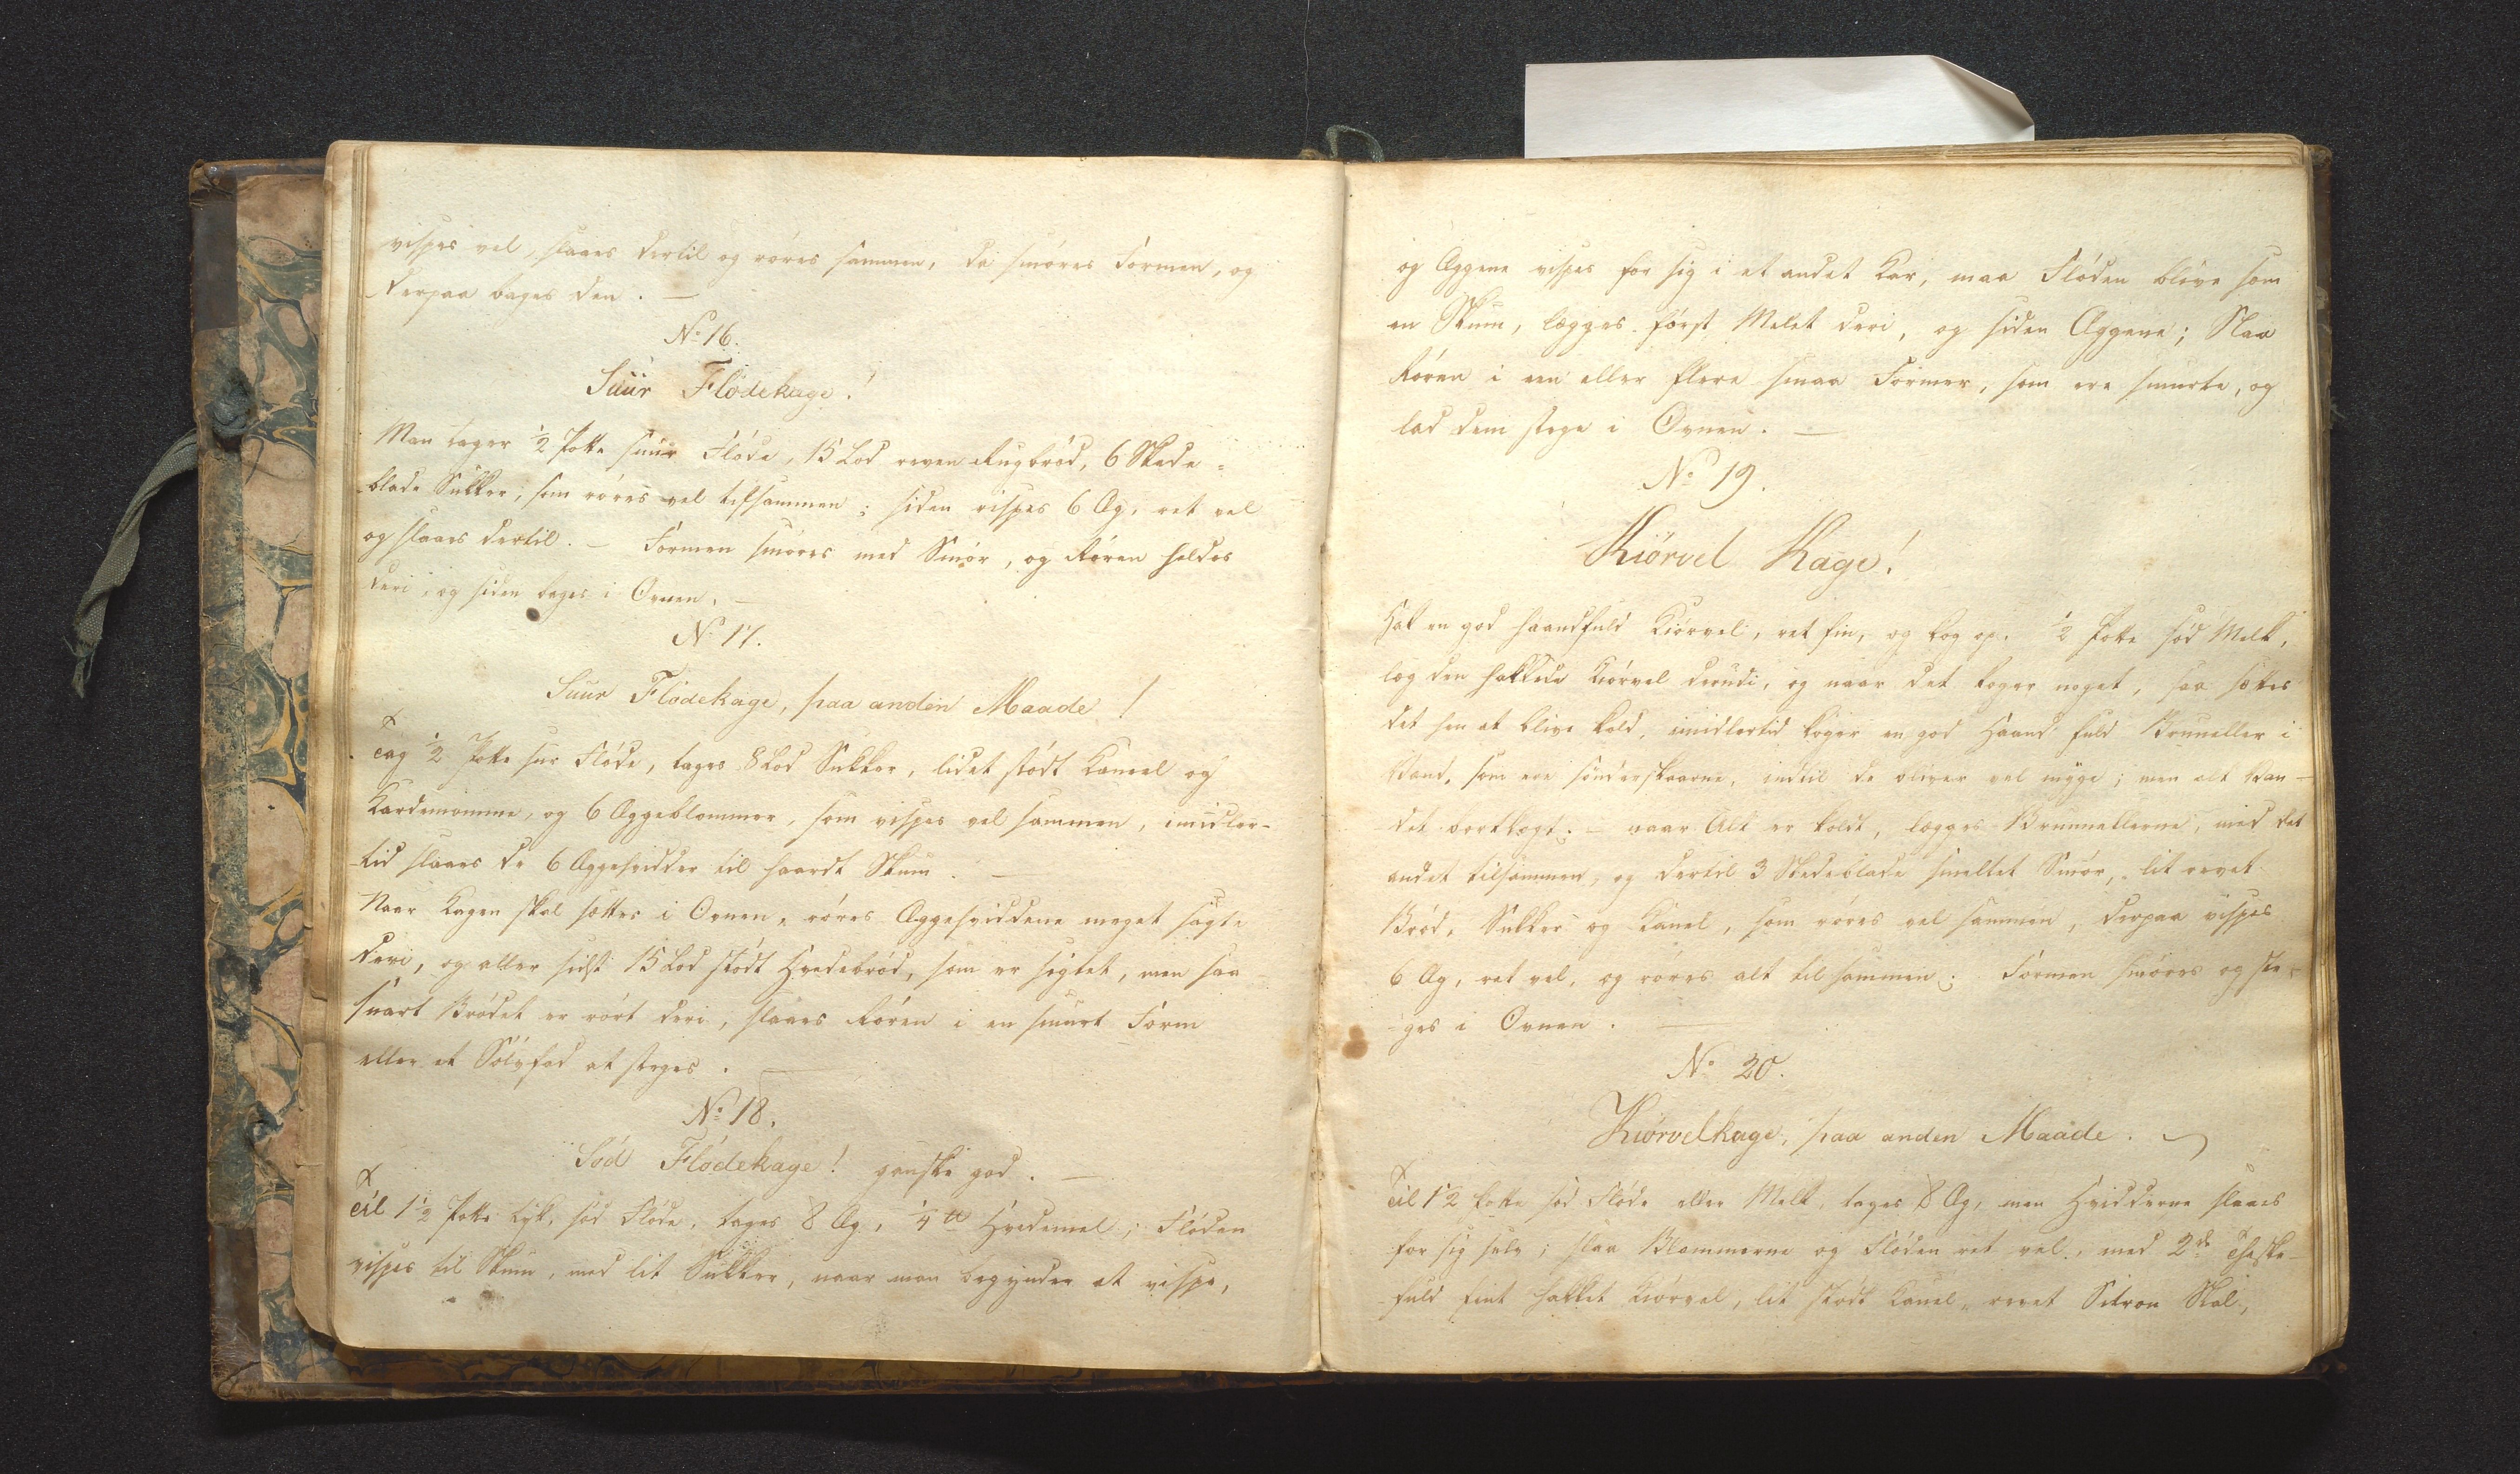 vispes vel, slaaes dertil og röres sammen, da smöres Formen, og
derpaa bages den. —
No 16.
Suur Flödekage!
Man tager ½ Potte suur Flöde, 15 Lod reven Rugbröd, 6 Skede-
blade Sukker, som röres vel tilsammen; siden vispes 6 Æg, ret vel
og slaaes dertil. — Formen smöres med Smör, og Rören heldes
deri, og siden bages i Ovnen. —
No 17.
Suur Flödekage, paa anden Maade!
Tag ½ Potte sur Flöde, tages 8 Lod Sukker, lidet stödt Kaneel og
Kardemomme, og 6 Æggeblommer, som vispes vel sammen, imidler-
tid slaaes de 6 Æggehvidder til haardt Skum. —
Naar Kagen skal sættes i Ovnen, röres Æggehviddene meget sagte
deri, og aller sidst 15 Lod stödt Hvedebröd, som er sigtet, men saa
snart Brödet er rört deri, slaaes Rören i en smurt Form
eller et Sölvfad at steges. —
No 18.
Söd Flödekage! ganske god. —
Til 1½ Potte tyk, söd Flöde, tages 8 Æg, ¼ ℔ Hvedemel; Flöden
vispes til Skum, med lit Sukker, naar man begynder at vispe,
og Æggene vispes for sig i et andet Kar, maa Flöden blive som
en Skum, lægges först Melet deri, og siden Æggene; Slaa
Rören i een eller flere smaa Former, som ere smurte, og
lad dem stege i Ovnen. —
No 19.
Kiörvel Kage!
Hak en god haandfuld Kiörvel, ret fin, og kog op ½ Potte söd Melk,
læg den hakkede Kiörvel derudi, og naar det koger noget, saa sættes
det hen at blive kold, imidlertid koger en god Haand fuld Bruneller i
Vand, som ere sönderskaarne, indtil de bliver vel myge; men alt Van-
det bortlagt; — naar Alt er koldt, lægges Brunnellerne, med det
andet tilsammen, og dertil 3 Skedeblade smeltet Smör, lit revet
Bröd, Sukker og Kanel, som röres vel sammen, derpaa vispes
6 Æg, ret vel, og röres alt til sammen; Formen smöres og ste-
ges i Ovnen. —
No 20.
Kiörvelkage, paa anden Maade.
Til 1½ Potte söd Flöde eller Melk, tages 8 Æg, men Hvidderne slaaes
for sig selv; slaa Blommerne og Flöden ret vel, med 2de Theske-
fuld fint hakket Kiörvel, lit stödt Kanel, revet Sitron Skal,